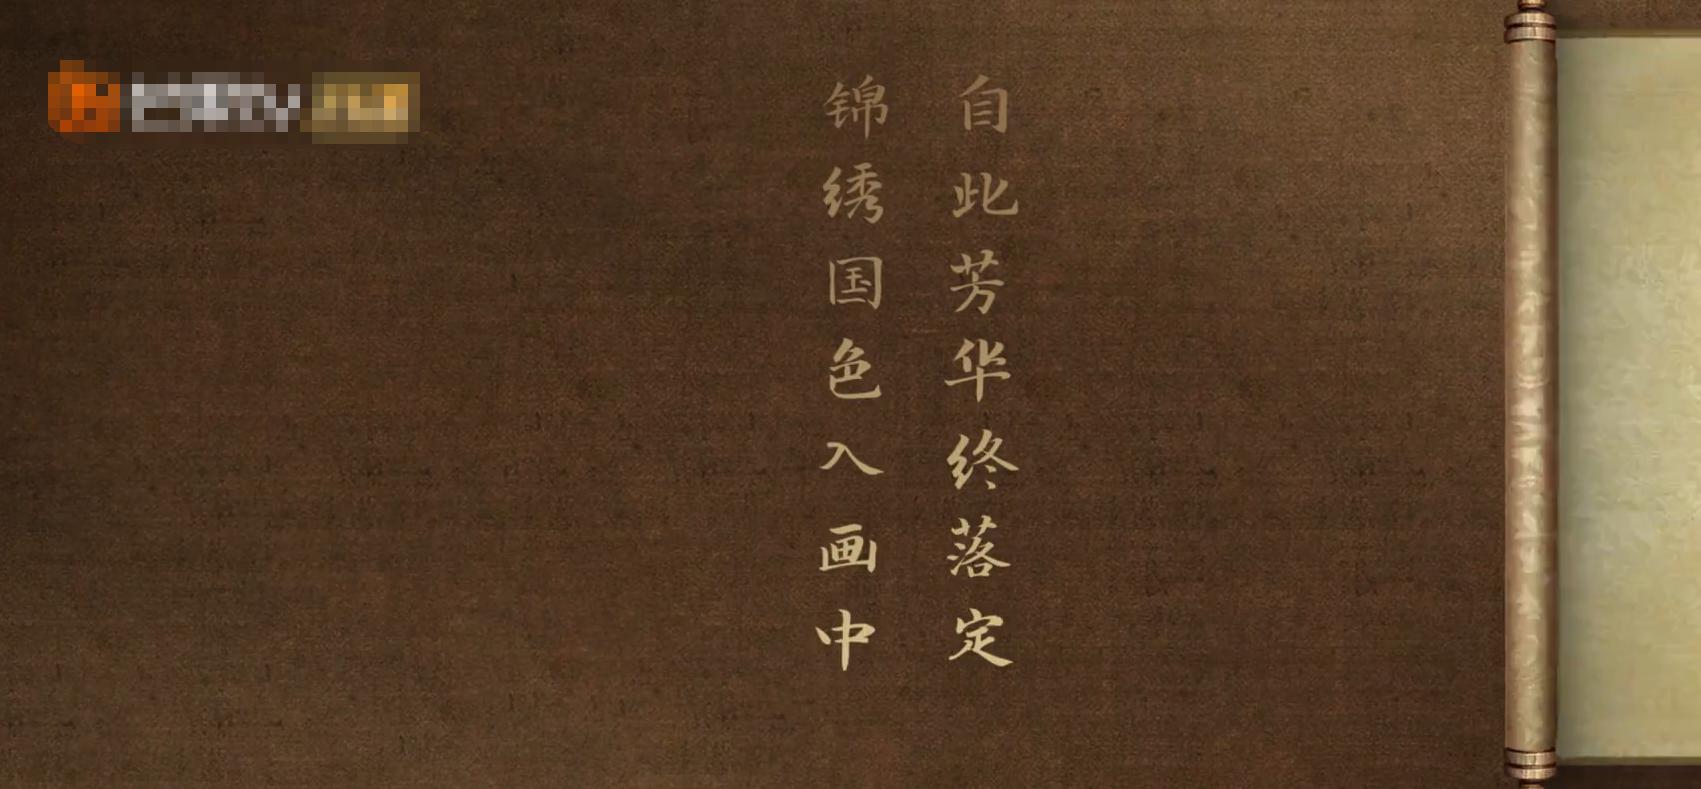 自此芳华终落定
锦绣国色入画中